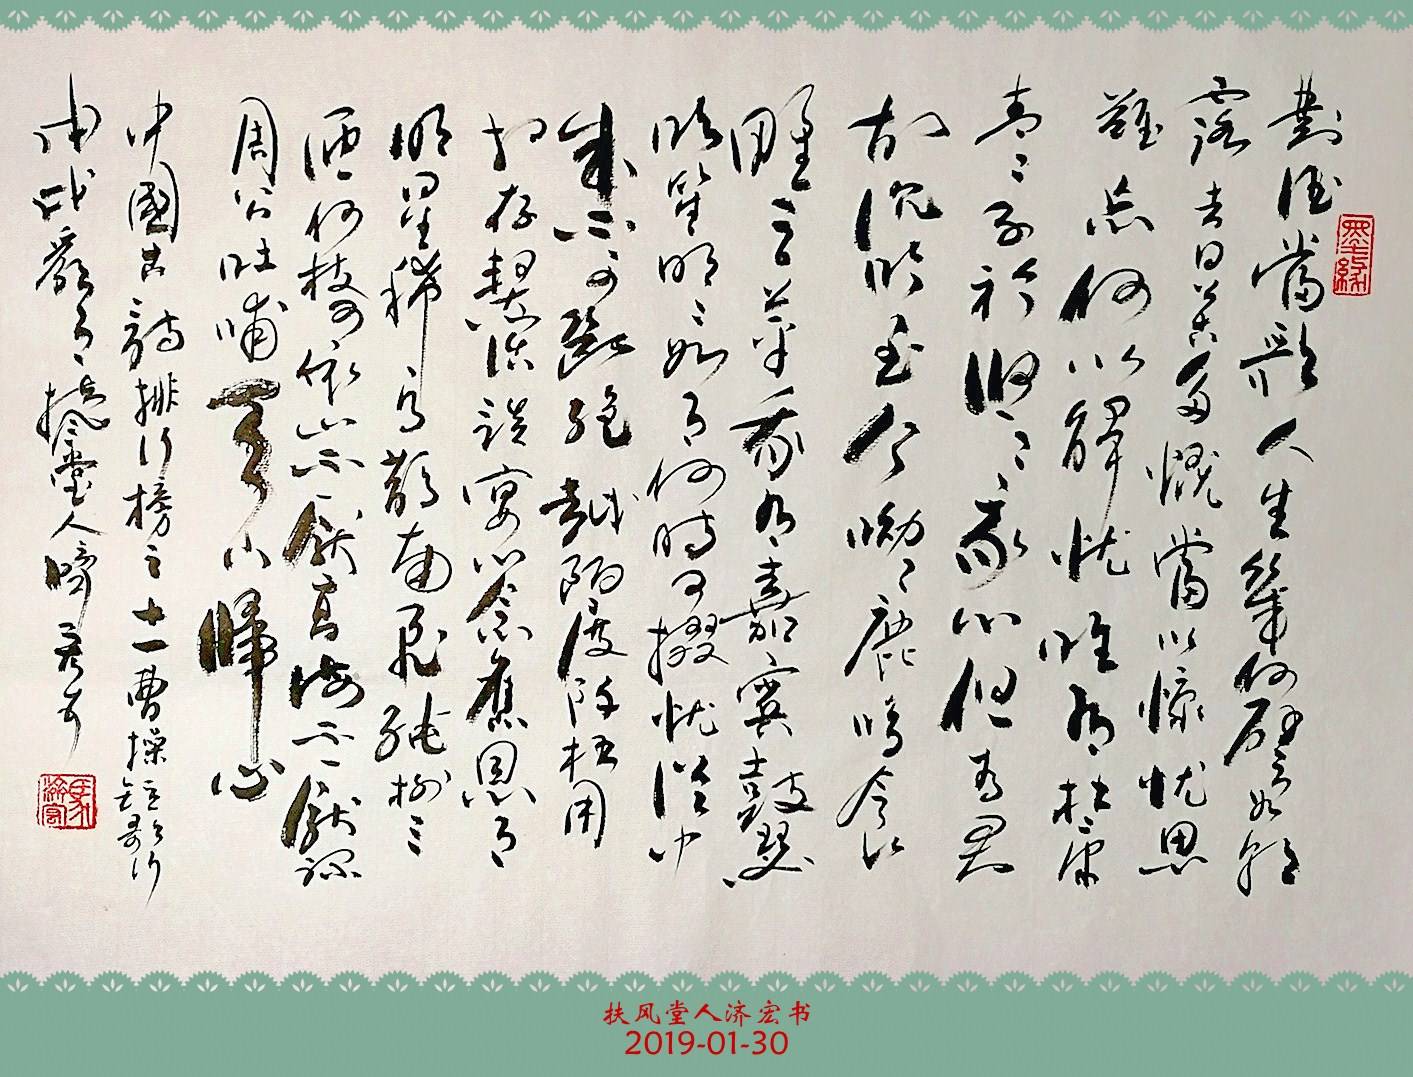 墨缘
對酒當歌人生幾何譬如朝
露去日苦多慨當以慷忧思
難忘何以解忧唯有杜康
青々子衿悠々我心但為君
故沉吟至今呦々鹿鳴食
野之苹我有嘉賓鼓瑟
吹笙明々如月何時可掇忧從中
來不可斷絕越陌度阡枉用
相存契闊談宴心念舊恩月
明星稀烏鵲南飛繞樹三
匝何枝可依山不厭高海不厭深
周公吐哺天下歸心
中國古詩排行榜之十一曹操短歌行
戊戌扶風堂人濟宏書
扶风堂人济宏书
2019-01-30